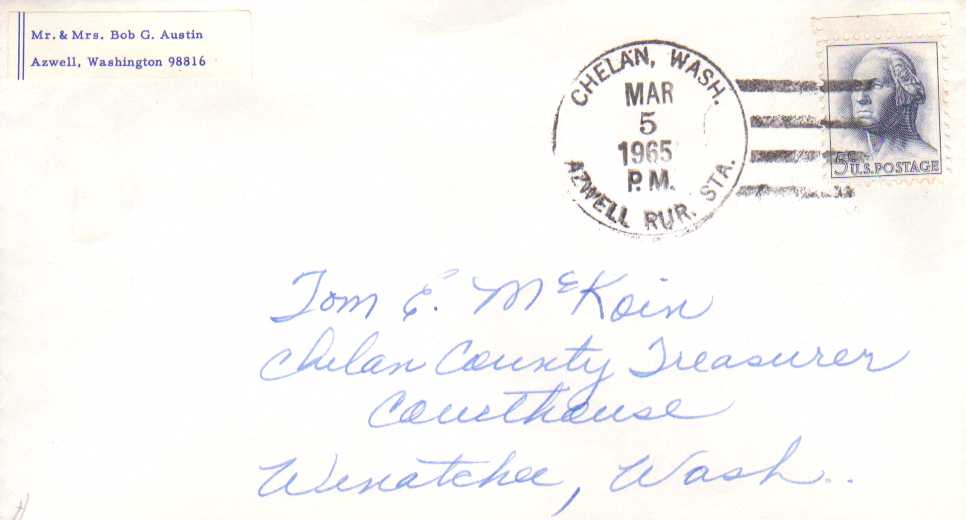 Mr. & Mrs. Bob G. Austin
Azwell, Washington 98816
CHELAN, WASH.
MAR
5
1965
P.M.
AZWELL RUR. STA.
5c U.S. POSTAGE
Tom E. McKoin
Chelan County Treasurer
Courthouse
Wenatchee, Wash..